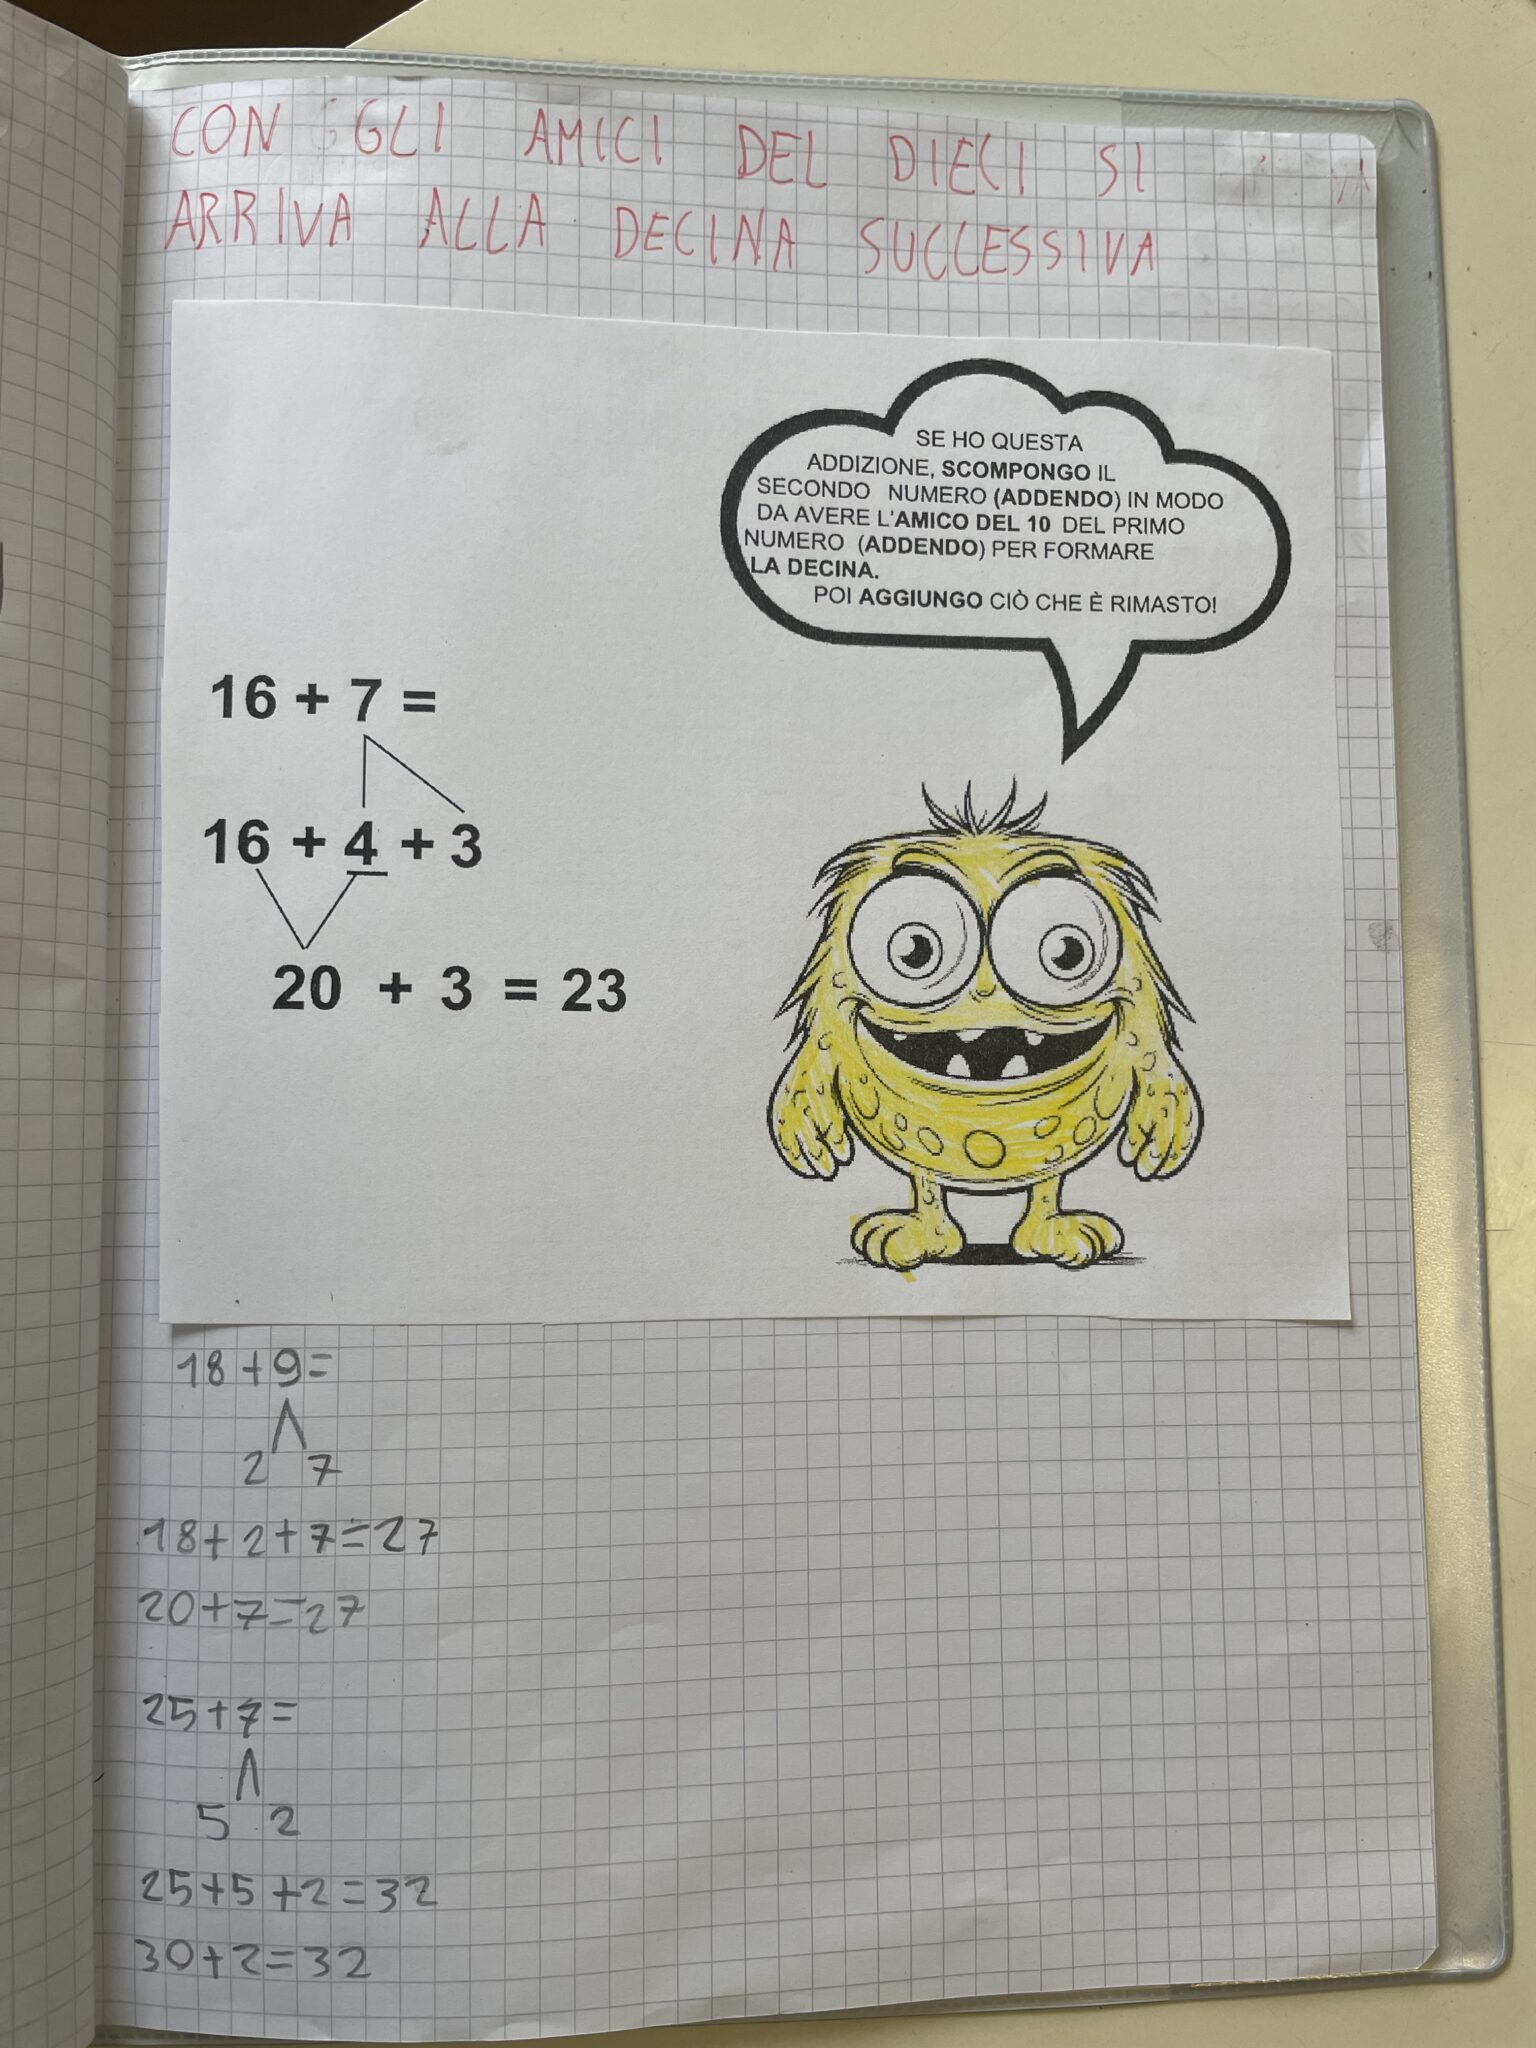 CON GGLI AMICI DEL DIECI SI
ARRIVA ALLA DECINA SUCCESSIVA
SE HO QUESTA
ADDIZIONE, SCOMPONGO IL
SECONDO NUMERO (ADDENDO) IN MODO
DA AVERE L'AMICO DEL 10 DEL PRIMO
NUMERO (ADDENDO) PER FORMARE
LA DECINA.
POI AGGIUNGO CIÒ CHE È RIMASTO!
16 + 7 =
16 + 4 + 3
20 + 3 = 23
18+9=
2 7
18+2+7=27
20+7=27
25+7=
5 2
25+5+2=32
30+2=32